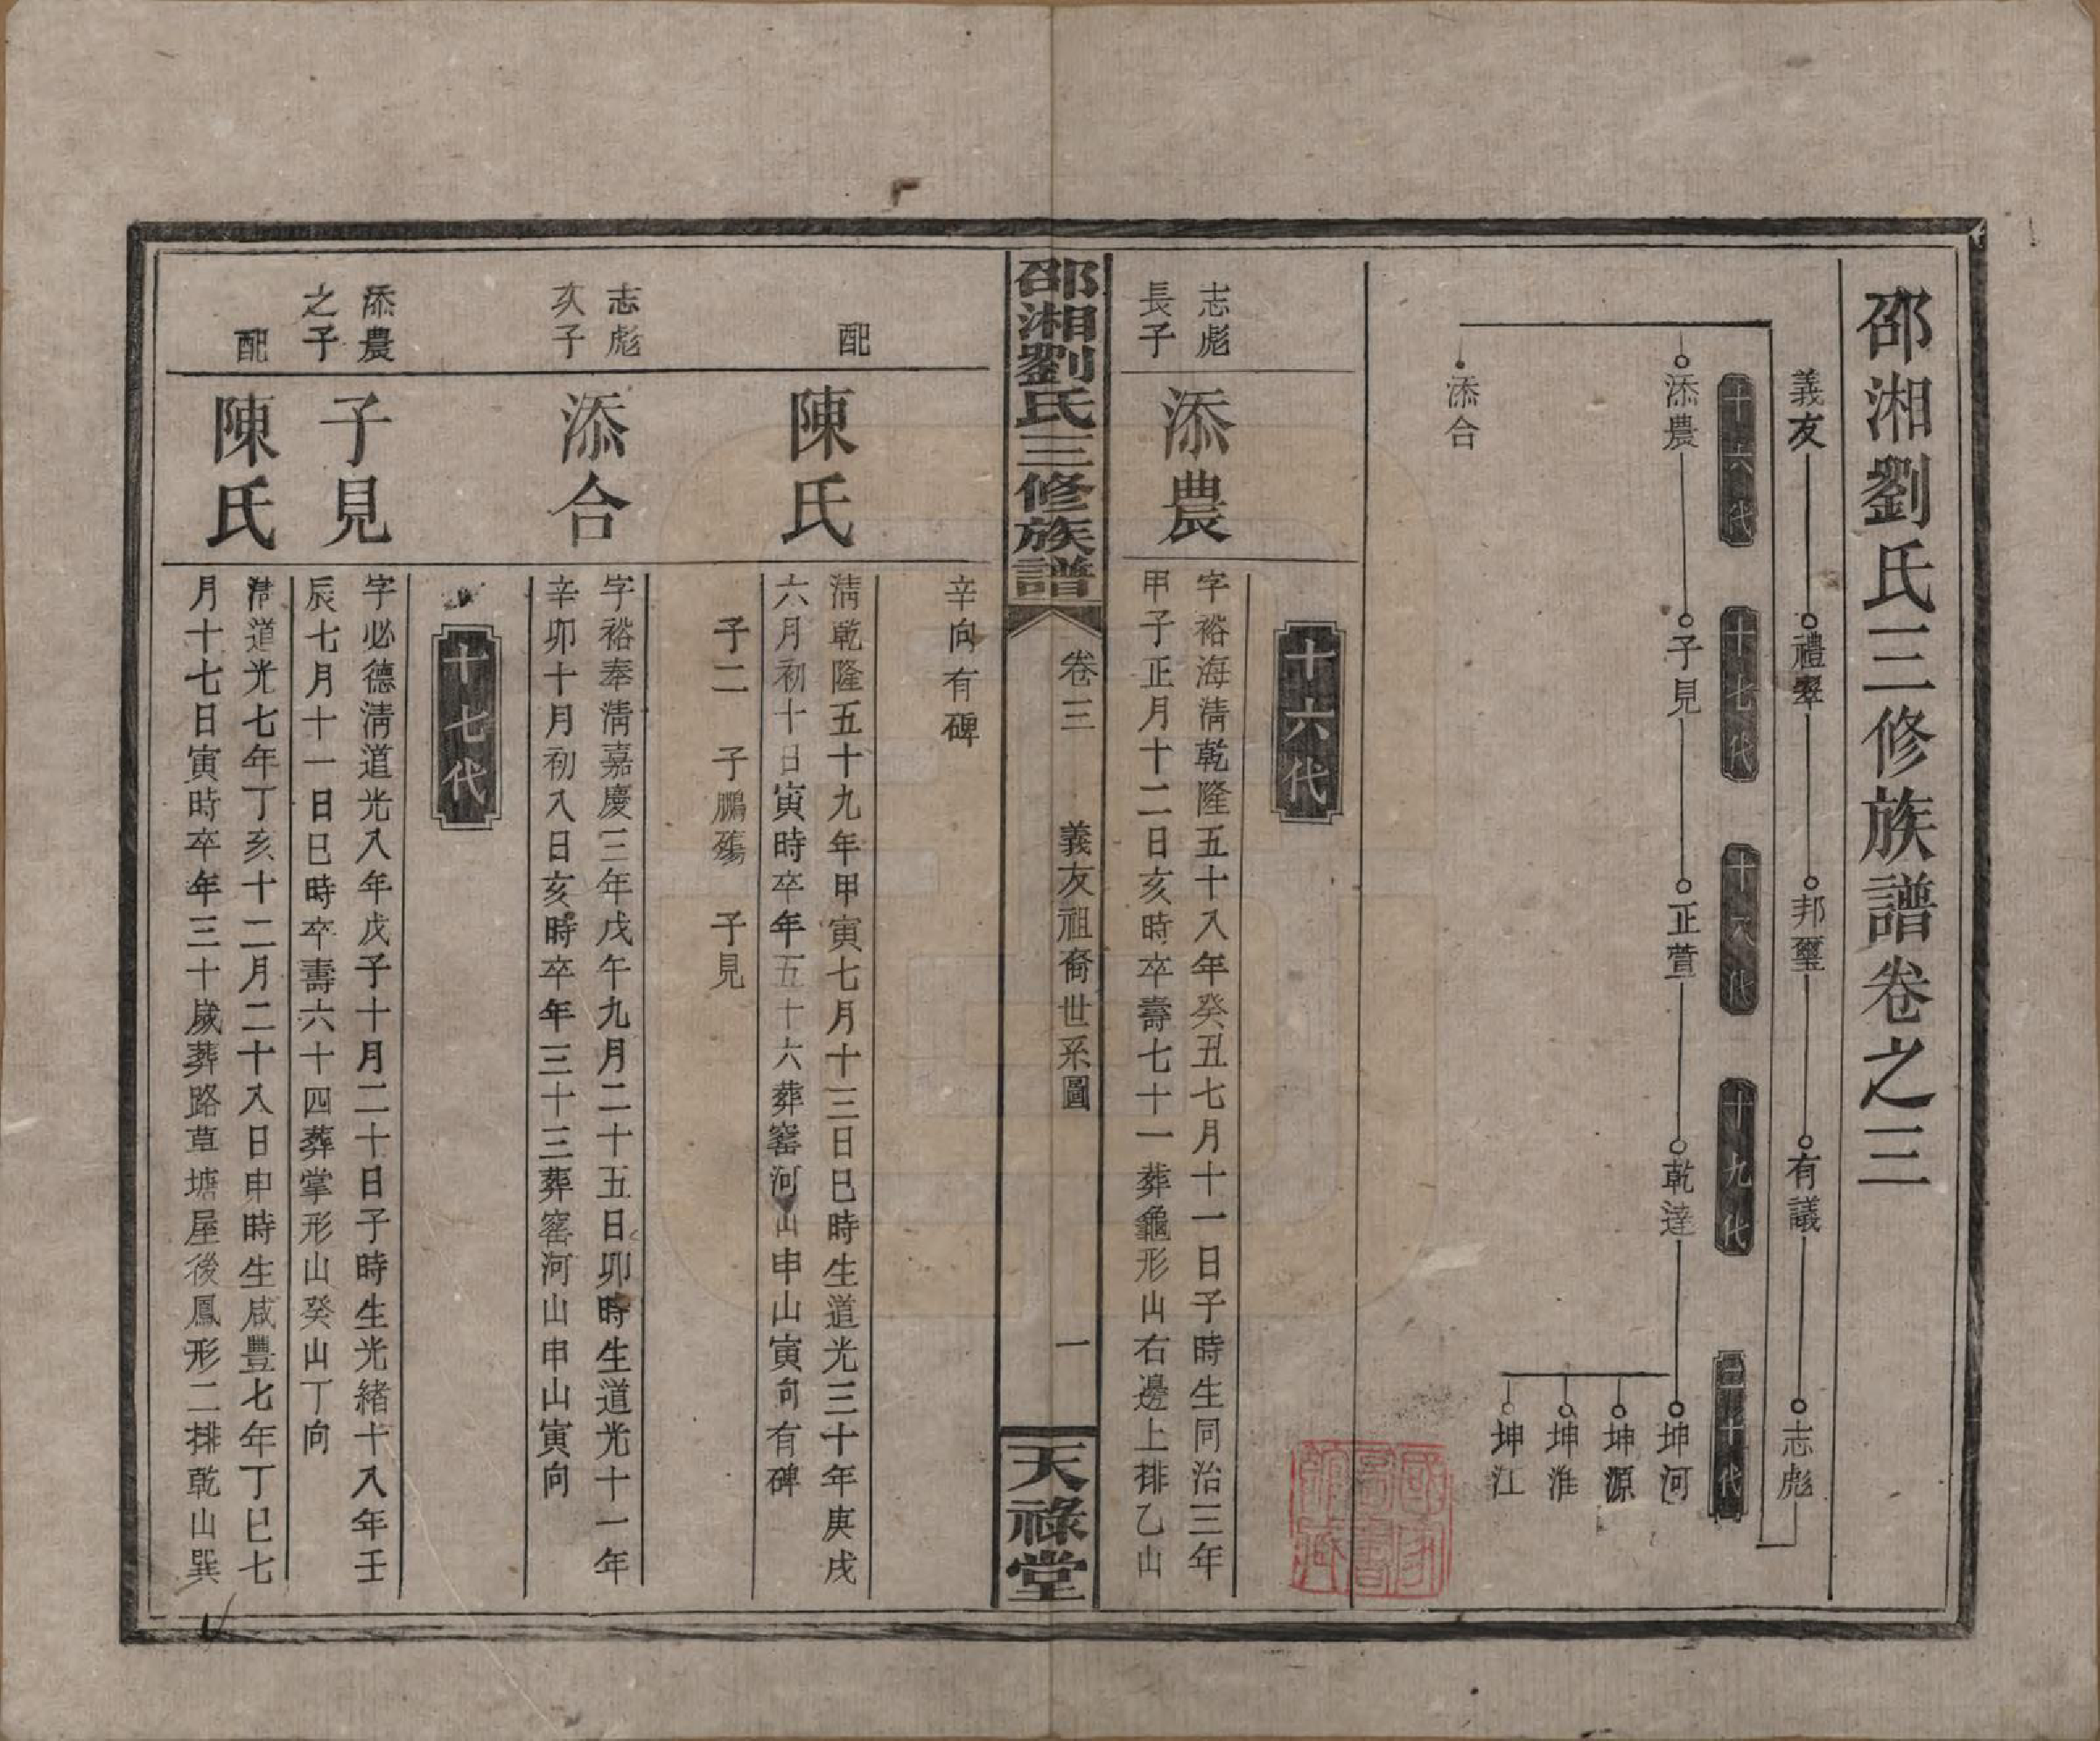 邵湘劉氏三修族譜卷之三
義友 禮翠 邦璽 有議 志彪
十六代 十七代 十八代 十九代 二十代
添農 子見 正萱 乾達 坤河
坤源
坤淮
坤江
添合
十六代
志彪
長子
添農
字裕海清乾隆五十八年癸丑七月十一日子時生同治三年
甲子正月十二日亥時卒壽七十一葬龜形山右邊上排乙山
邵湘劉氏三修族譜 卷三 義友祖裔世系圖 一 天祿堂
辛向有碑
配
陳氏
清乾隆五十九年甲寅七月十三日巳時生道光三十年庚戌
六月初十日寅時卒年五十六葬窰河山申山寅向有碑
子二 子鵬殤 子見
志彪
次子
添合
字裕奉清嘉慶三年戊午九月二十五日卯時生道光十一年
辛卯十月初八日亥時卒年三十三葬窰河山申山寅向
十七代
添農
之子
子見
字必德清道光八年戊子十月二十日子時生光緒十八年壬
辰七月十一日巳時卒壽六十四葬掌形山癸山丁向
配
陳氏
清道光七年丁亥十二月二十八日申時生咸豐七年丁巳七
月十七日寅時卒年三十歲葬路草塘屋後鳳形二排乾山巽